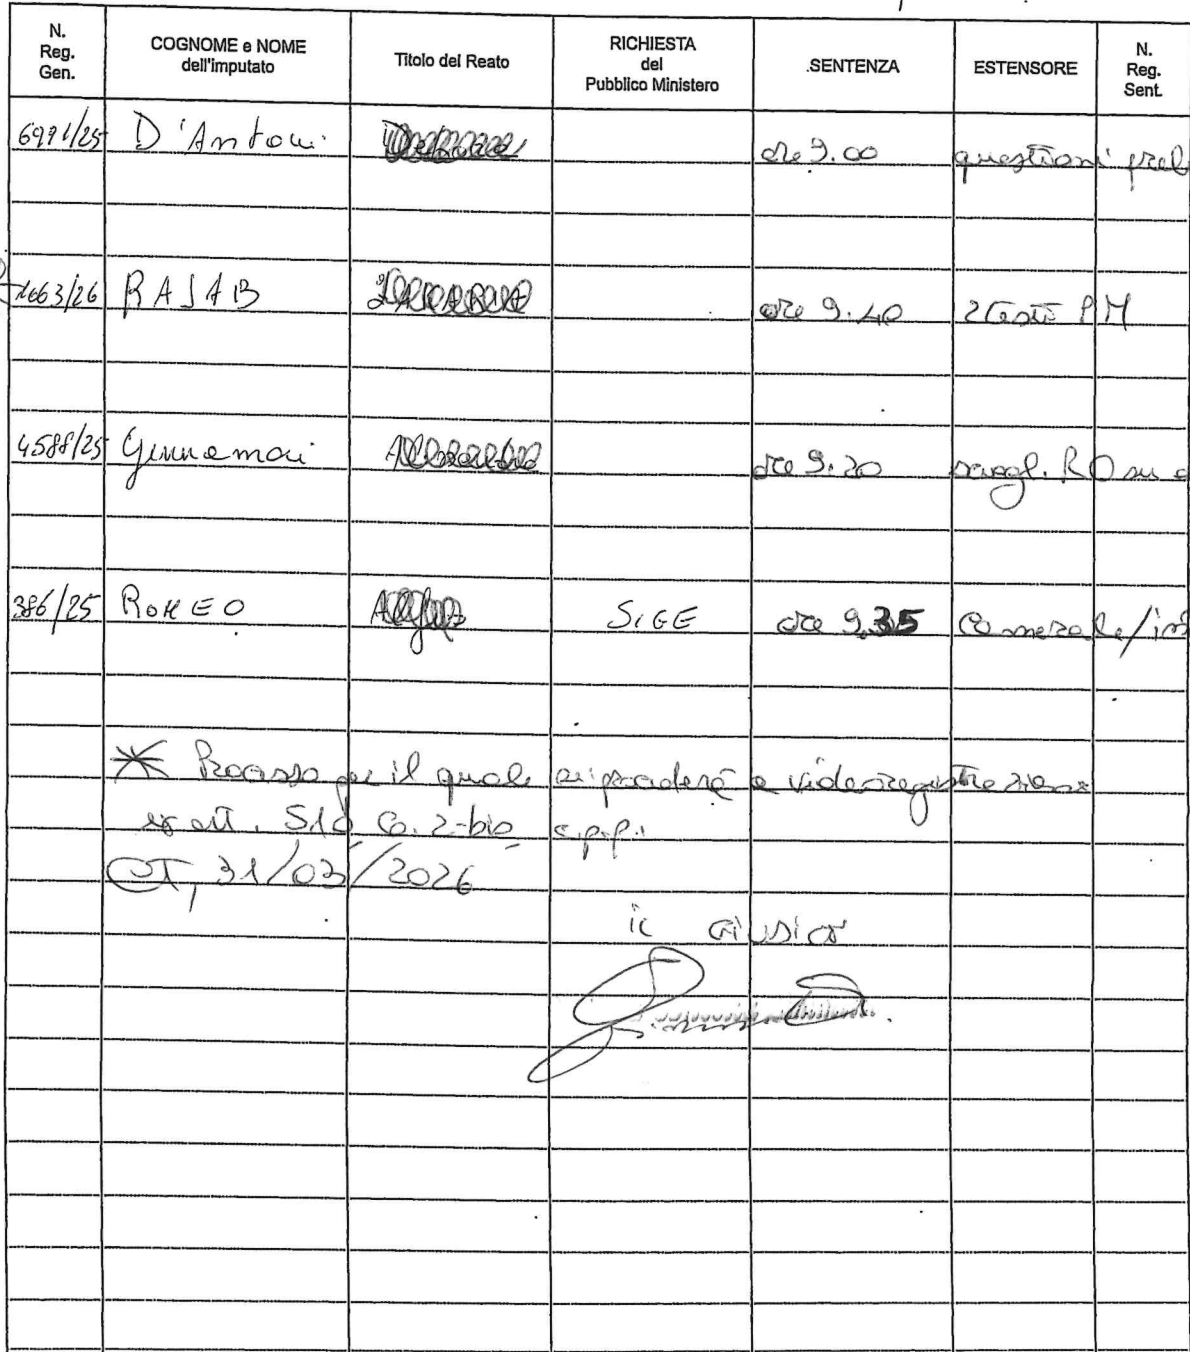 N. Reg. Gen. COGNOME e NOME dell'imputato Titolo del Reato RICHIESTA del Pubblico Ministero SENTENZA ESTENSORE N. Reg. Sent.
D'Antoni ore 9.00 questioni prel
1663/26 RAJAB ore 9.40 2 testi PM
4588/25 ore 9.20 RO su
386/25 ROMEO SIGE ore 9.35 Camerale/
* Processo per il quale si procederà a videoregistrazione
ex art. 510 co. 2-bis c.p.p.
CT, 31/03/2026
il GIUDICE